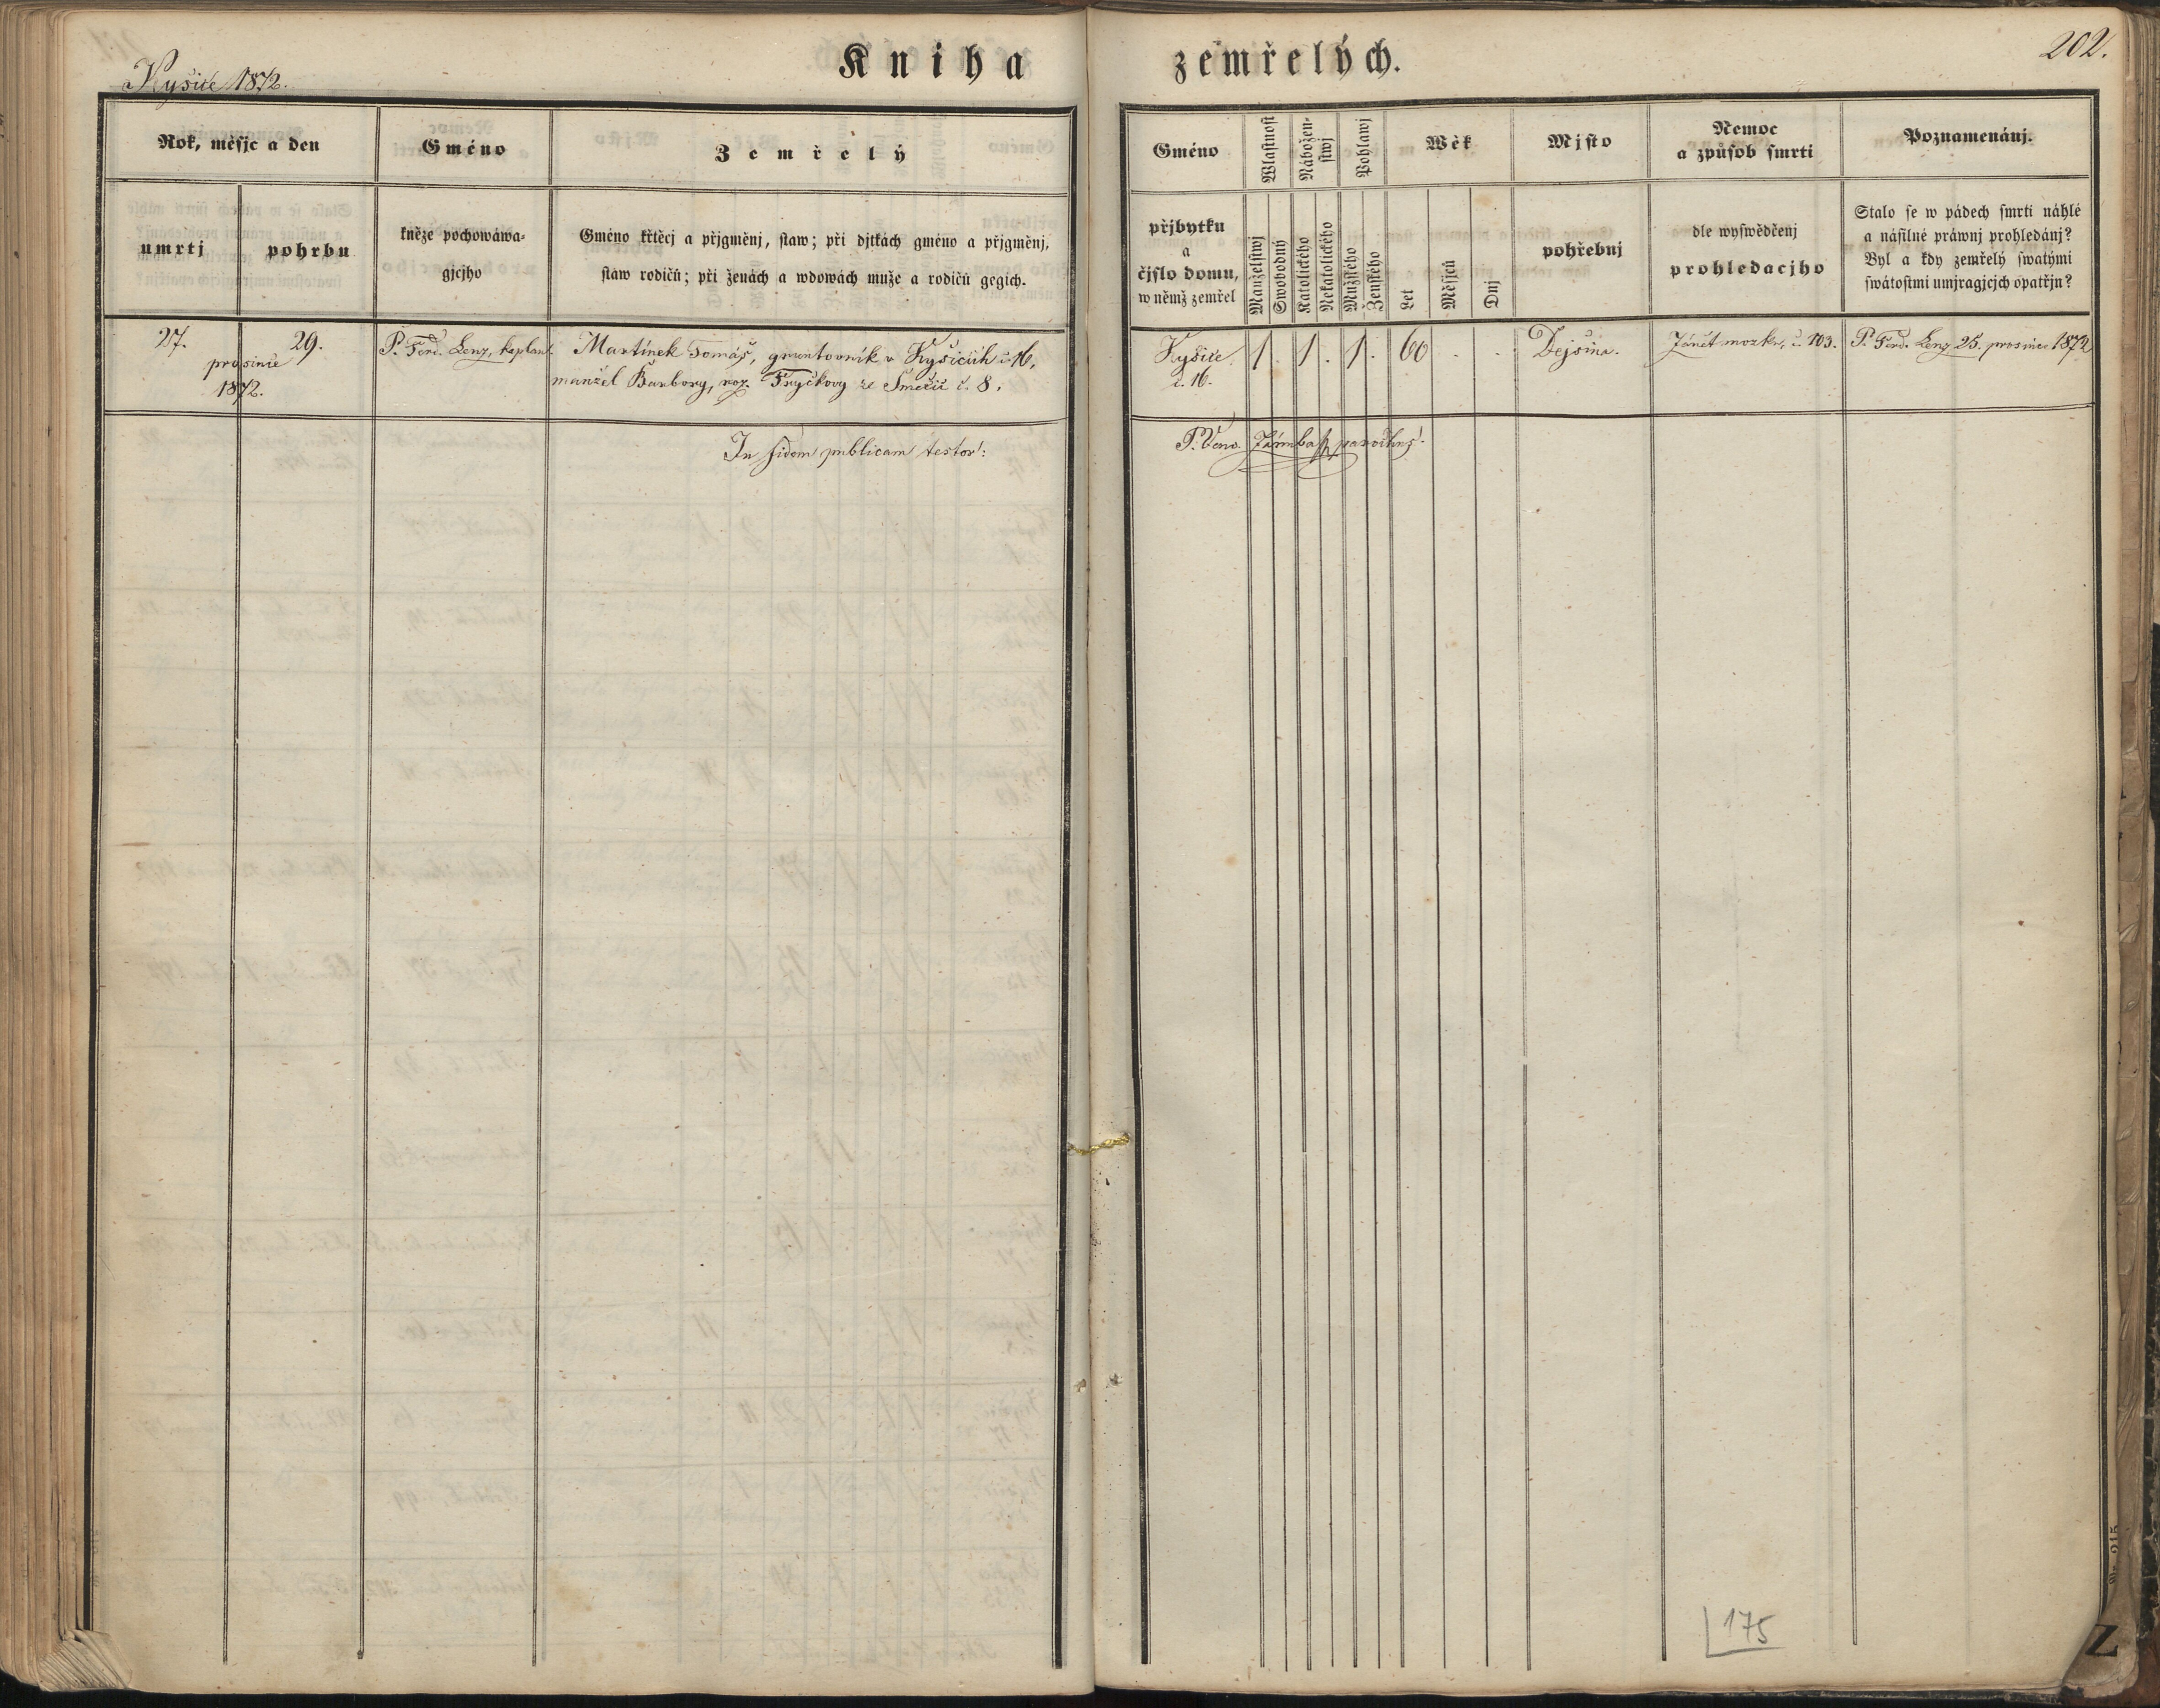 Kyšice 1872.
Kniha zemřelých.
202.
Rok, měsjc a den
Gméno
Zemřelý
umrtj
pohrbu
kněze pochowáwa-
gjcjho
Gméno křtěcj a přjgměnj, staw; při djtkách gméno a přjgměnj,
staw rodičů; při ženách a wdowách muže a rodičů gegich.
27.
29.
prosince
1872.
P. Ferd. Lenz, kaplan.
Martínek Tomáš, gruntovník v Kyšicích č. 16,
manžel Barbory, roz. Tryčkovy ze Smědčic č. 8.
In fidem publicam testor:
Gméno
Wlastnost
Nábožen-
stwj
Pohlawj
Wěk
Mjsto
Nemoc
a způsob smrti
Poznamenánj.
přjbytku
a
čjslo domu,
w němž zemřel
Manželstwj
Swobodný
Katolického
Nekatolického
Mužského
Ženského
Let
Měsjců
Dnj
pohřebnj
dle wyswědčenj
prohledacjho
Stalo se w pádech smrti náhlé
a násilné práwnj prohledánj?
Byl a kdy zemřelý swatými
swátostmi umjragjcjch opatřjn?
Kyšice
č. 16.
1 . 1 . 1 . 60 . .
Dejšina.
Zánět mozku, č. 103.
P. Ferd. Lenz 25. prosince 1872
farářkns
175
Z